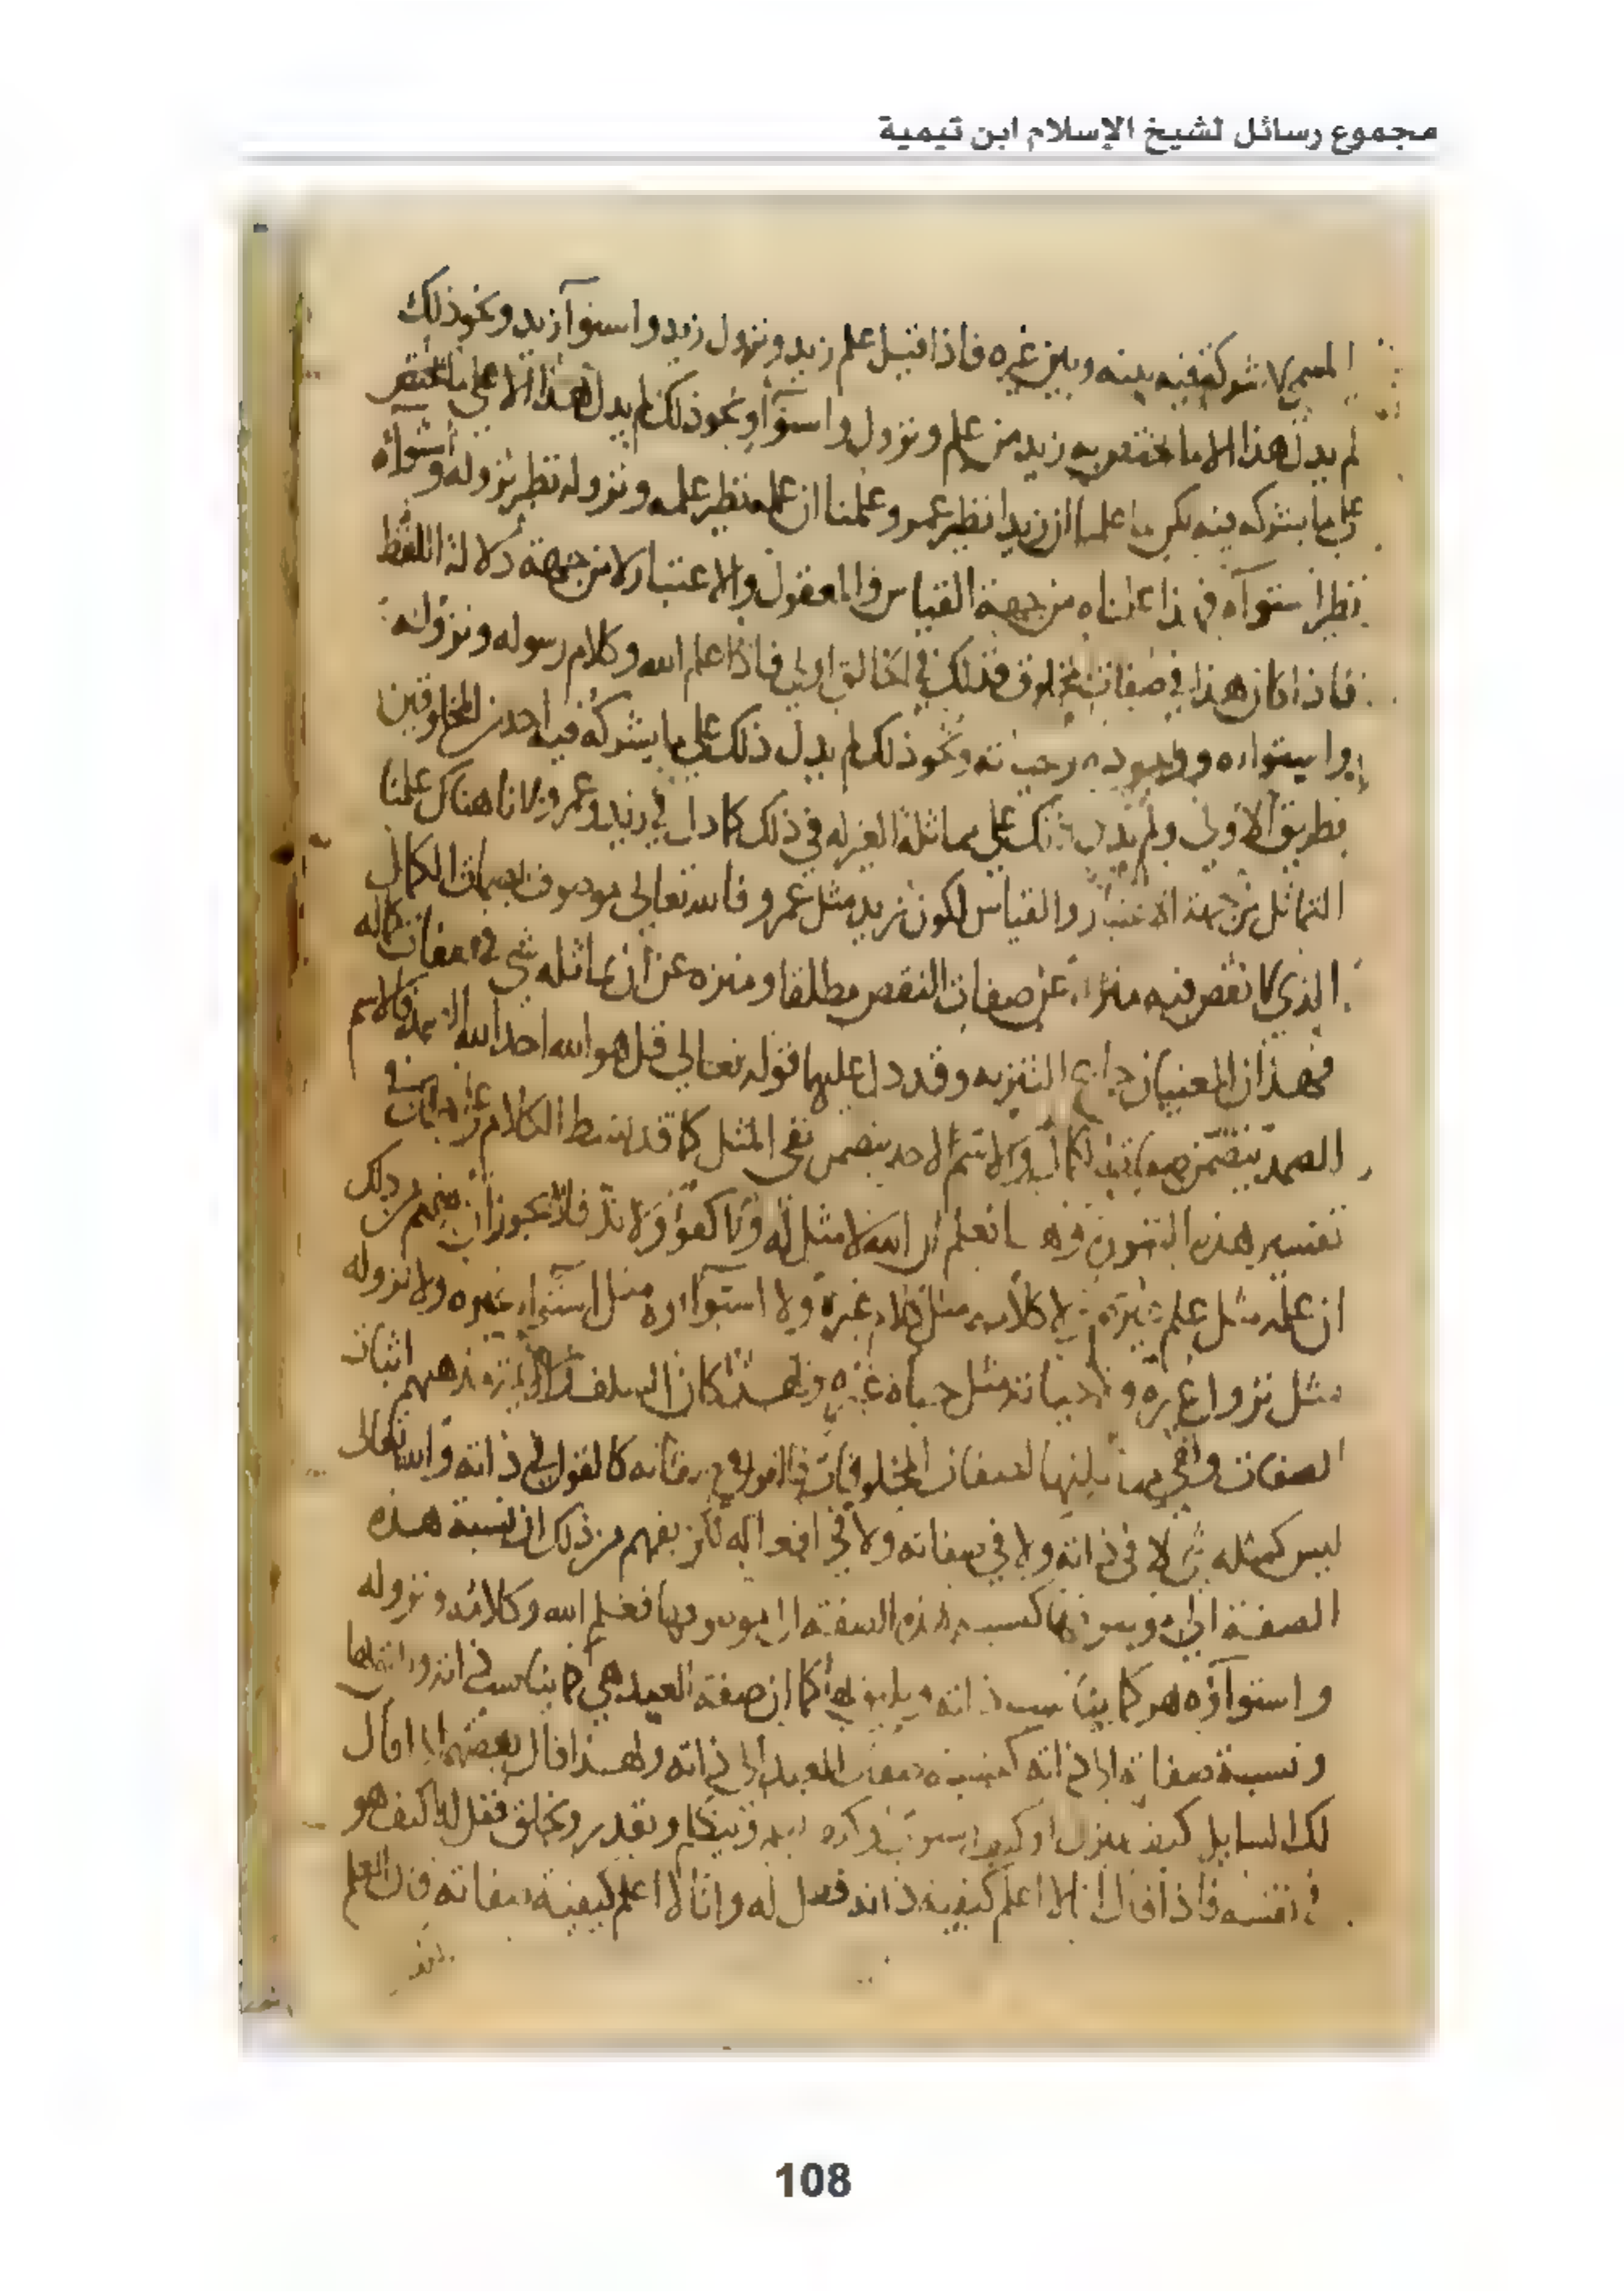 مجموع رسائل لشيخ الإسلام ابن تيمية
المسمى لا شركة فيه بينه وبين غيره فاذا قيل علم زيد ونزول زيد واستوآ زيد ونحو ذلك
لم يدل هذا الا ما يختص به زيد من علم ونزول واستوآ ونحو ذلك لم يدل هذا الا على ما يختص
على ما يشركه فيه لكن ما علمنا ان زيدا نظير عمرو وعلمنا ان علمه نظير علمه ونزوله نظير نزوله واستوآه
نظير استوآه فهذا علمناه من جهة القياس والمعقول والاعتبار لا من جهة دلالة اللفظ
فاذا كان هذا في صفات المخلوق فذلك في الخالق اولى فاذا علم الله وكلام رسوله ونزوله
واستواءه ووجوده وحياته ونحو ذلك لم يدل ذلك على ما يشركه فيه احد من المخلوقين
بطريق الاولى ولم يدل ذلك على مماثلة الغير له في ذلك كما دل في زيد وعمرو لانا هناك علمنا
التماثل من جهة الاعتبار والقياس لكون زيد مثل عمرو فالله تعالى موصوف بصفات الكمال
الذي لا نقص فيه منزه عن صفات النقص مطلقا ومنزه عن ان يماثله شي في صفات كماله
فهذان المعنيان جمع التنزيه وقد دل عليهما قوله تعالى قل هو الله احد الله الصمد فالاسم
الصمد يتضمن صفات الكمال والاسم الاحد يتضمن نفي المثل كما قد بسط الكلام على ذلك في
تفسير هذه السورة نعلم ان الله لا مثل له ولا كفؤ ولا ند فلا يجوز ان يفهم من ذلك
ان علمه مثل علم غيره ولا كلامه مثل كلام غيره ولا استوآءه مثل استواء غيره ولا نزوله
مثل نزول غيره ولا حياته مثل حياة غيره ولهذا كان السلف مذهبهم اثبات
الصفات ونفي مماثلتها لصفات المخلوقات فالقول في صفاته كالقول في ذاته والله تعالى
ليس كمثله شي لا في ذاته ولا في صفاته ولا في افعاله لكن يفهم من ذلك ان نسبة هذه
الصفة الى موصوفها كنسبة هذه الصفة الى موصوفها فعلم الله وكلامه ونزوله
واستوآؤه هو كما يناسب ذاته ويليق بها كما ان صفة العبد هي كما يناسب ذاته ويليق بها
ونسبة صفاته الى ذاته كنسبة صفات العبد الى ذاته ولهذا قال بعضهم اذا قال
لك السايل كيف ينزل او كيف استوى ويتكلم ويقدر ويخلق فقل له كيف هو
في نفسه فاذا قال انا لا اعلم كيفية ذاته فقل له وانا لا اعلم كيفية صفاته فان العلم
108